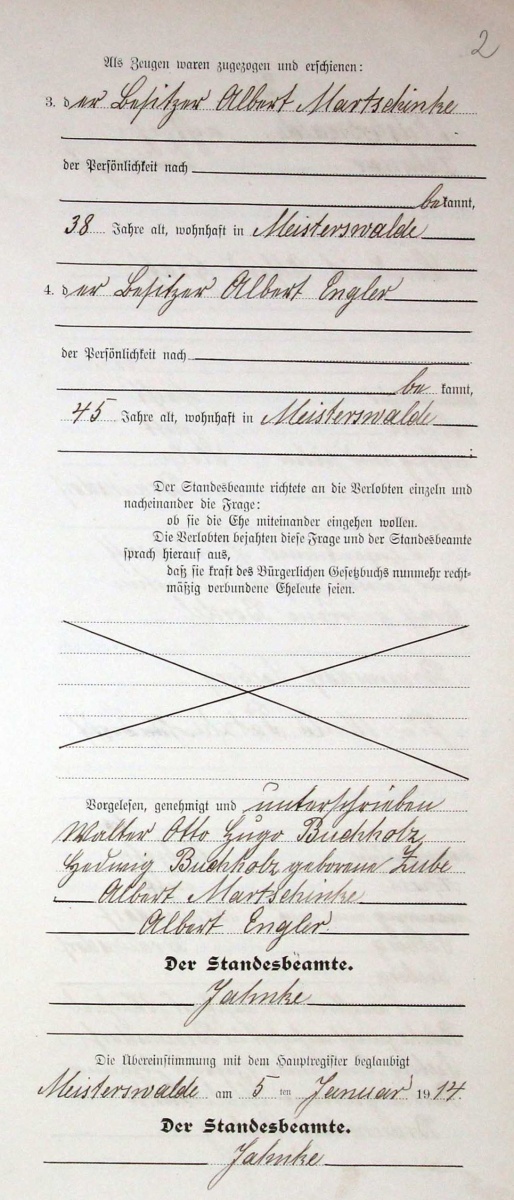 2
Als Zeugen waren zugezogen und erschienen:
3. der Besitzer Albert Martschinke
der Persönlichkeit nach
bekannt,
38 Jahre alt, wohnhaft in Meisterswalde
4. der Besitzer Albert Engler
der Persönlichkeit nach
be kannt,
45 Jahre alt, wohnhaft in Meisterswalde
;
Der Standesbeamte richtete an die Verlobten einzeln und
nacheinander die Frage:
ob sie die Ehe miteinander eingehen wollen.
Die Verlobten bejahten diese Frage und der Standesbeamte
sprach hierauf aus,
daß sie kraft des Bürgerlichen Gesetzbuchs nunmehr recht-
mäßig verbundene Eheleute seien.
Vorgelesen, genehmigt und unterschrieben
Walter Otto Hugo Buchholz
Hedwig Buchholz geborene Zube
Albert Martschinke
Albert Engler
Der Standesbeamte.
Jahnke
Die Übereinstimmung mit dem Hauptregister beglaubigt
Meisterswalde am 5 ten Januar 1914.
Der Standesbeamte.
Jahnke